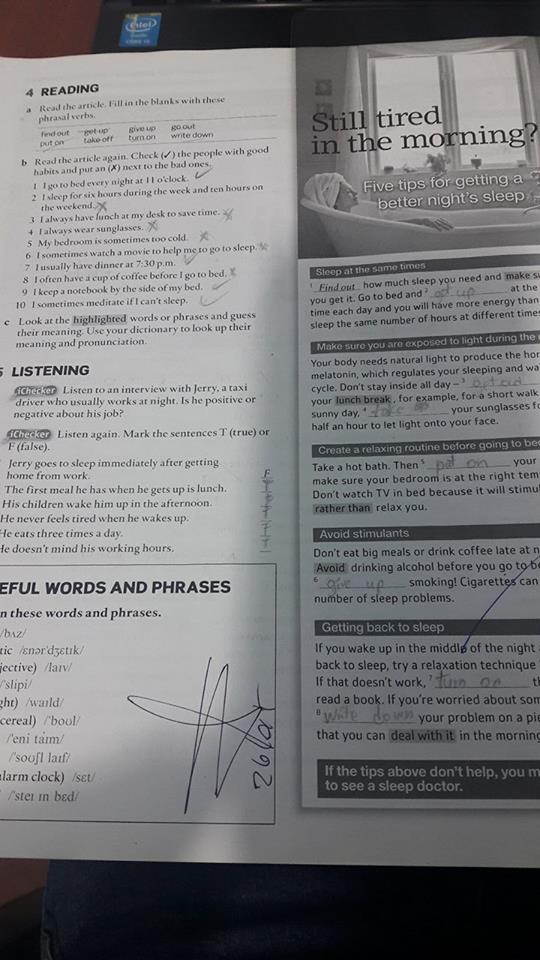 intel
4 READING
a Read the article. Fill in the blanks with these
phrasal verbs.
find out get up give up go out
put on take off turn on write down
b Read the article again. Check (✓) the people with good
habits and put an (✗) next to the bad ones.
1 I go to bed every night at 11 o'clock. ✓
2 I sleep for six hours during the week and ten hours on
the weekend. ✗
3 I always have lunch at my desk to save time. ✗
4 I always wear sunglasses. ✗
5 My bedroom is sometimes too cold. ✗
6 I sometimes watch a movie to help me to go to sleep. ✗
7 I usually have dinner at 7:30 p.m. ✓
8 I often have a cup of coffee before I go to bed. ✗
9 I keep a notebook by the side of my bed. ✓
10 I sometimes meditate if I can't sleep. ✓
c Look at the highlighted words or phrases and guess
their meaning. Use your dictionary to look up their
meaning and pronunciation.
5 LISTENING
iChecker Listen to an interview with Jerry, a taxi
driver who usually works at night. Is he positive or
negative about his job?
iChecker Listen again. Mark the sentences T (true) or
F (false).
Jerry goes to sleep immediately after getting
home from work. F
The first meal he has when he gets up is lunch.
His children wake him up in the afternoon.
He never feels tired when he wakes up.
He eats three times a day.
He doesn't mind his working hours.
EFUL WORDS AND PHRASES
n these words and phrases.
/bʌz/
tic /ɛnərˈdʒɛtɪk/
jective) /laɪv/
/ˈslipi/
ght) /waɪld/
cereal) /ˈboʊl/
/ˈeni taɪm/
/ˈsoʊʃl laɪf/
alarm clock) /sɛt/
/ˈsteɪ ɪn bɛd/
Still tired
in the morning?
Five tips for getting a
better night's sleep
Sleep at the same times
1 Find out how much sleep you need and make su
you get it. Go to bed and 2 get up at the
time each day and you will have more energy than
sleep the same number of hours at different times
Make sure you are exposed to light during the
Your body needs natural light to produce the hor
melatonin, which regulates your sleeping and wa
cycle. Don't stay inside all day – 3
your lunch break, for example, for a short walk
sunny day, 4 take off your sunglasses fo
half an hour to let light onto your face.
Create a relaxing routine before going to bed
Take a hot bath. Then 5 put on your
make sure your bedroom is at the right tem
Don't watch TV in bed because it will stimul
rather than relax you.
Avoid stimulants
Don't eat big meals or drink coffee late at n
Avoid drinking alcohol before you go to be
6 give up smoking! Cigarettes can
number of sleep problems.
Getting back to sleep
If you wake up in the middle of the night a
back to sleep, try a relaxation technique
If that doesn't work, 7 turn on th
read a book. If you're worried about som
8 write down your problem on a pie
that you can deal with it in the morning
If the tips above don't help, you m
to see a sleep doctor.